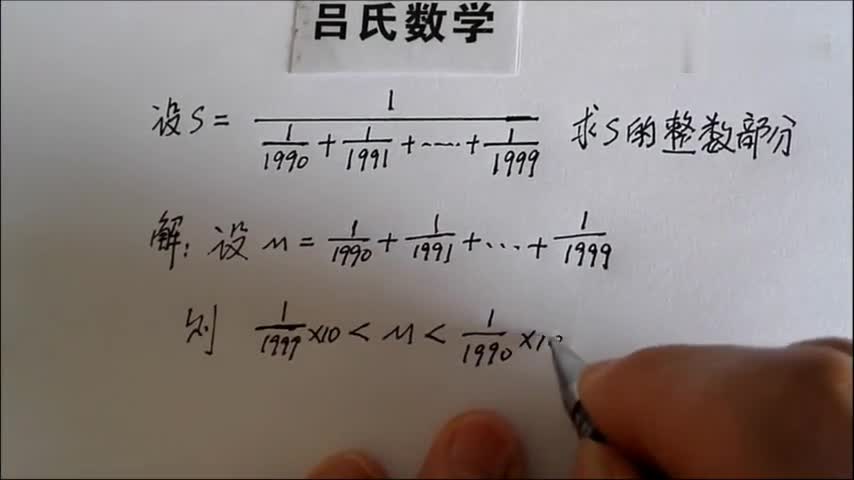 吕氏数学
设S = 1/(1/1990 + 1/1991 + ⋯ + 1/1999) 求S的整数部分
解: 设 M = 1/1990 + 1/1991 + ⋯ + 1/1999
则 1/1999 ×10 < M < 1/1990 ×10